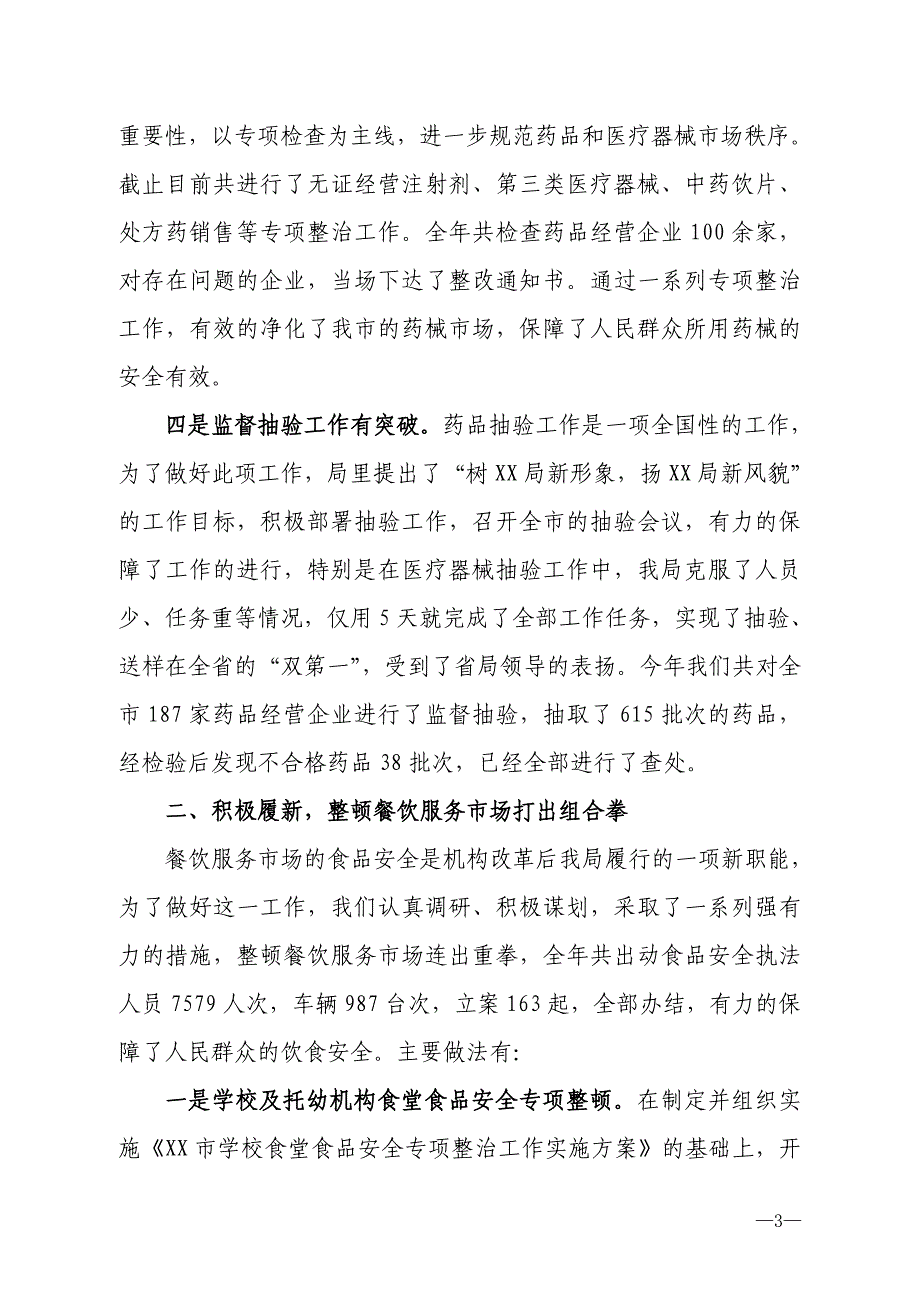 重要性，以专项检查为主线，进一步规范药品和医疗器械市场秩序。
截止目前共进行了无证经营注射剂、第三类医疗器械、中药饮片、
处方药销售等专项整治工作。全年共检查药品经营企业 100 余家，
对存在问题的企业，当场下达了整改通知书。通过一系列专项整治
工作，有效的净化了我市的药械市场，保障了人民群众所用药械的
安全有效。
四是监督抽验工作有突破。药品抽验工作是一项全国性的工作，
为了做好此项工作，局里提出了“树 XX 局新形象，扬 XX 局新风貌”
的工作目标，积极部署抽验工作，召开全市的抽验会议，有力的保
障了工作的进行，特别是在医疗器械抽验工作中，我局克服了人员
少、任务重等情况，仅用 5 天就完成了全部工作任务，实现了抽验、
送样在全省的“双第一”，受到了省局领导的表扬。今年我们共对全
市 187 家药品经营企业进行了监督抽验，抽取了 615 批次的药品，
经检验后发现不合格药品 38 批次，已经全部进行了查处。
二、积极履新，整顿餐饮服务市场打出组合拳
餐饮服务市场的食品安全是机构改革后我局履行的一项新职能，
为了做好这一工作，我们认真调研、积极谋划，采取了一系列强有
力的措施，整顿餐饮服务市场连出重拳，全年共出动食品安全执法
人员 7579 人次，车辆 987 台次，立案 163 起，全部办结，有力的保
障了人民群众的饮食安全。主要做法有：
一是学校及托幼机构食堂食品安全专项整顿。在制定并组织实
施《XX 市学校食堂食品安全专项整治工作实施方案》的基础上，开
—3—